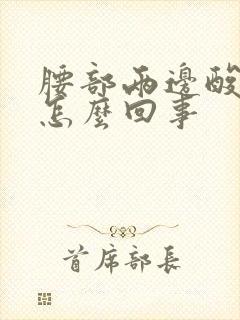 腰部兩邊酸
怎麼回事
首席部長